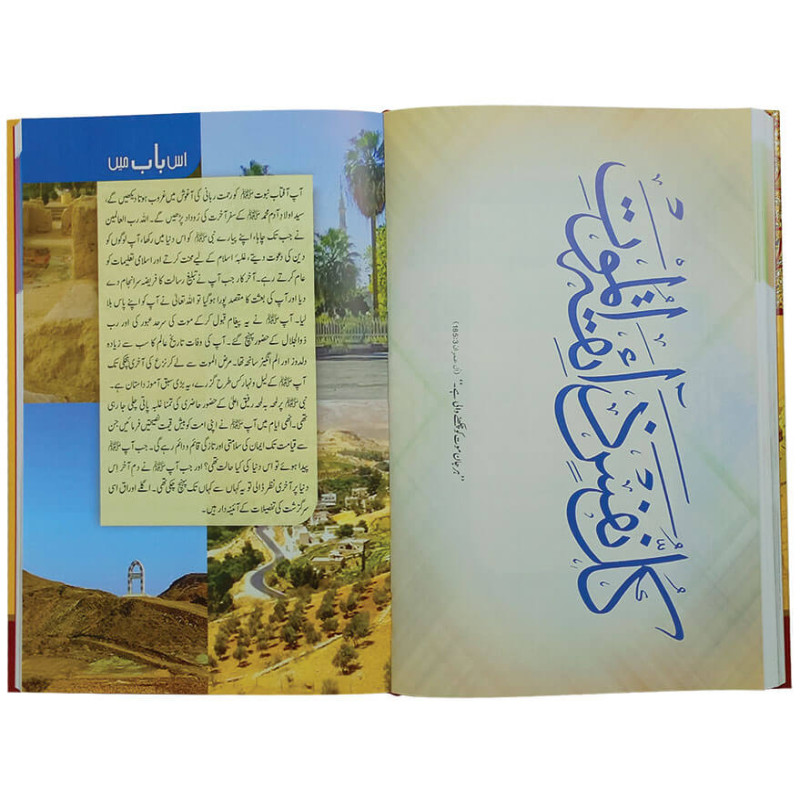 كُلُّ نَفْسٍ ذَآئِقَةُ الْمَوْتِ
”ہر جان موت کو چکھنے والی ہے۔“ (آل عمران 185:3)
اس باب میں
آپ آفتاب نبوت ﷺ کو رحمت ربانی کی آغوش میں غروب ہوتا دیکھیں گے،
سید اولاد آدم محمد ﷺ کے سفر آخرت کی روداد پڑھیں گے۔ اللہ رب العالمین
نے جب تک چاہا، اپنے پیارے نبی ﷺ کو اس دنیا میں رکھا، آپ لوگوں کو
دین کی دعوت دیتے، غلبۂ اسلام کے لیے محنت کرتے اور اسلامی تعلیمات کو
عام کرتے رہے۔ آخر کار جب آپ نے تبلیغ رسالت کا فریضہ سرانجام دے
دیا اور آپ کی بعثت کا مقصد پورا ہو گیا تو اللہ تعالی نے آپ کو اپنے پاس بلا
لیا۔ آپ ﷺ نے یہ پیغام قبول کر کے موت کی سرحد عبور کی اور رب
ذوالجلال کے حضور پہنچ گئے۔ آپ کی وفات تاریخ عالم کا سب سے زیادہ
دلدوز اور الم انگیز سانحہ تھا۔ مرض الموت سے لے کر نزع کی آخری ہچکی تک
آپ ﷺ کے لیل و نہار کس طرح گزرے، یہ بڑی سبق آموز داستان ہے۔
نبی ﷺ پر لمحہ بہ لمحہ رفیق اعلی کے حضور حاضری کی تمنا غلبہ پاتی چلی جا رہی
تھی۔ انھی ایام میں آپ ﷺ نے اپنی امت کو بیش قیمت نصیحتیں فرمائیں جن
سے قیامت تک ایمان کی سلامتی اور تازگی قائم و دائم رہے گی۔ جب آپ ﷺ
پیدا ہوئے تو اس دنیا کی کیا حالت تھی؟ اور جب آپ ﷺ نے دم آخر اس
دنیا پر آخری نظر ڈالی تو یہ کہاں سے کہاں تک پہنچ چکی تھی۔ اگلے اوراق اسی
سرگزشت کی تفصیلات کے آئینہ دار ہیں۔